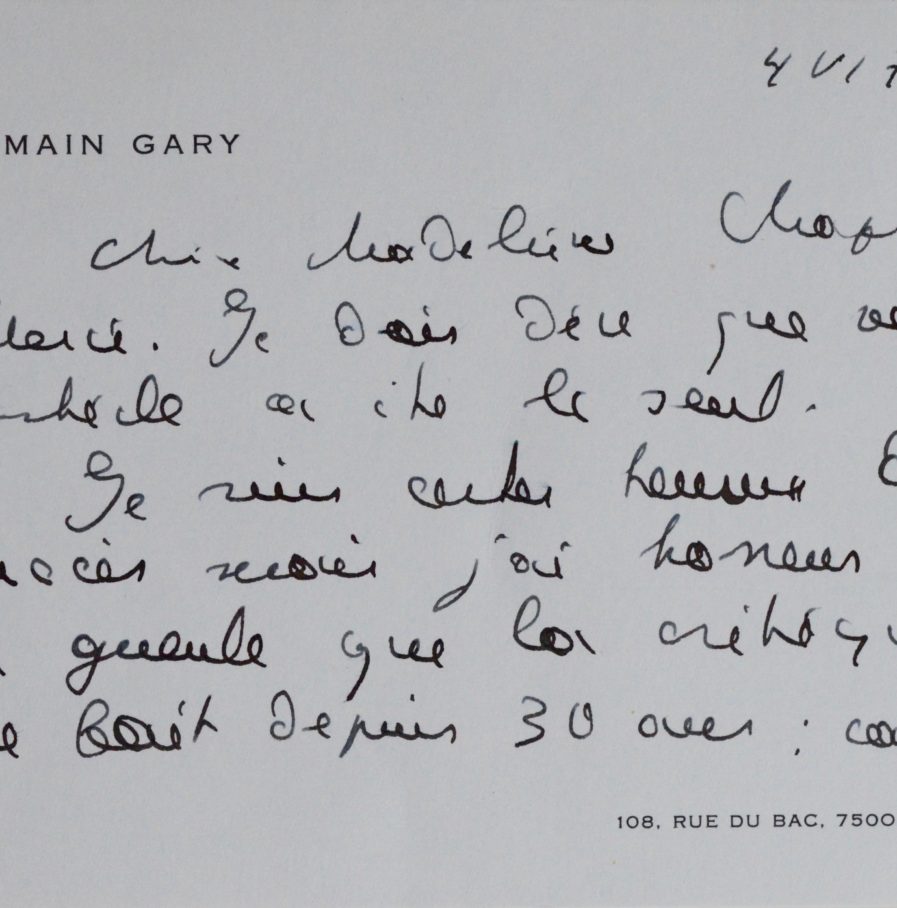 4 VI 7
MAIN GARY
Chère Madeleine Chap
Merci. Je dois dire que
article a été le seul.
Je suis certes heureux
ccès mais j'ai horreur
gueule que la critique
fait depuis 30 ans :
108, RUE DU BAC, 7500